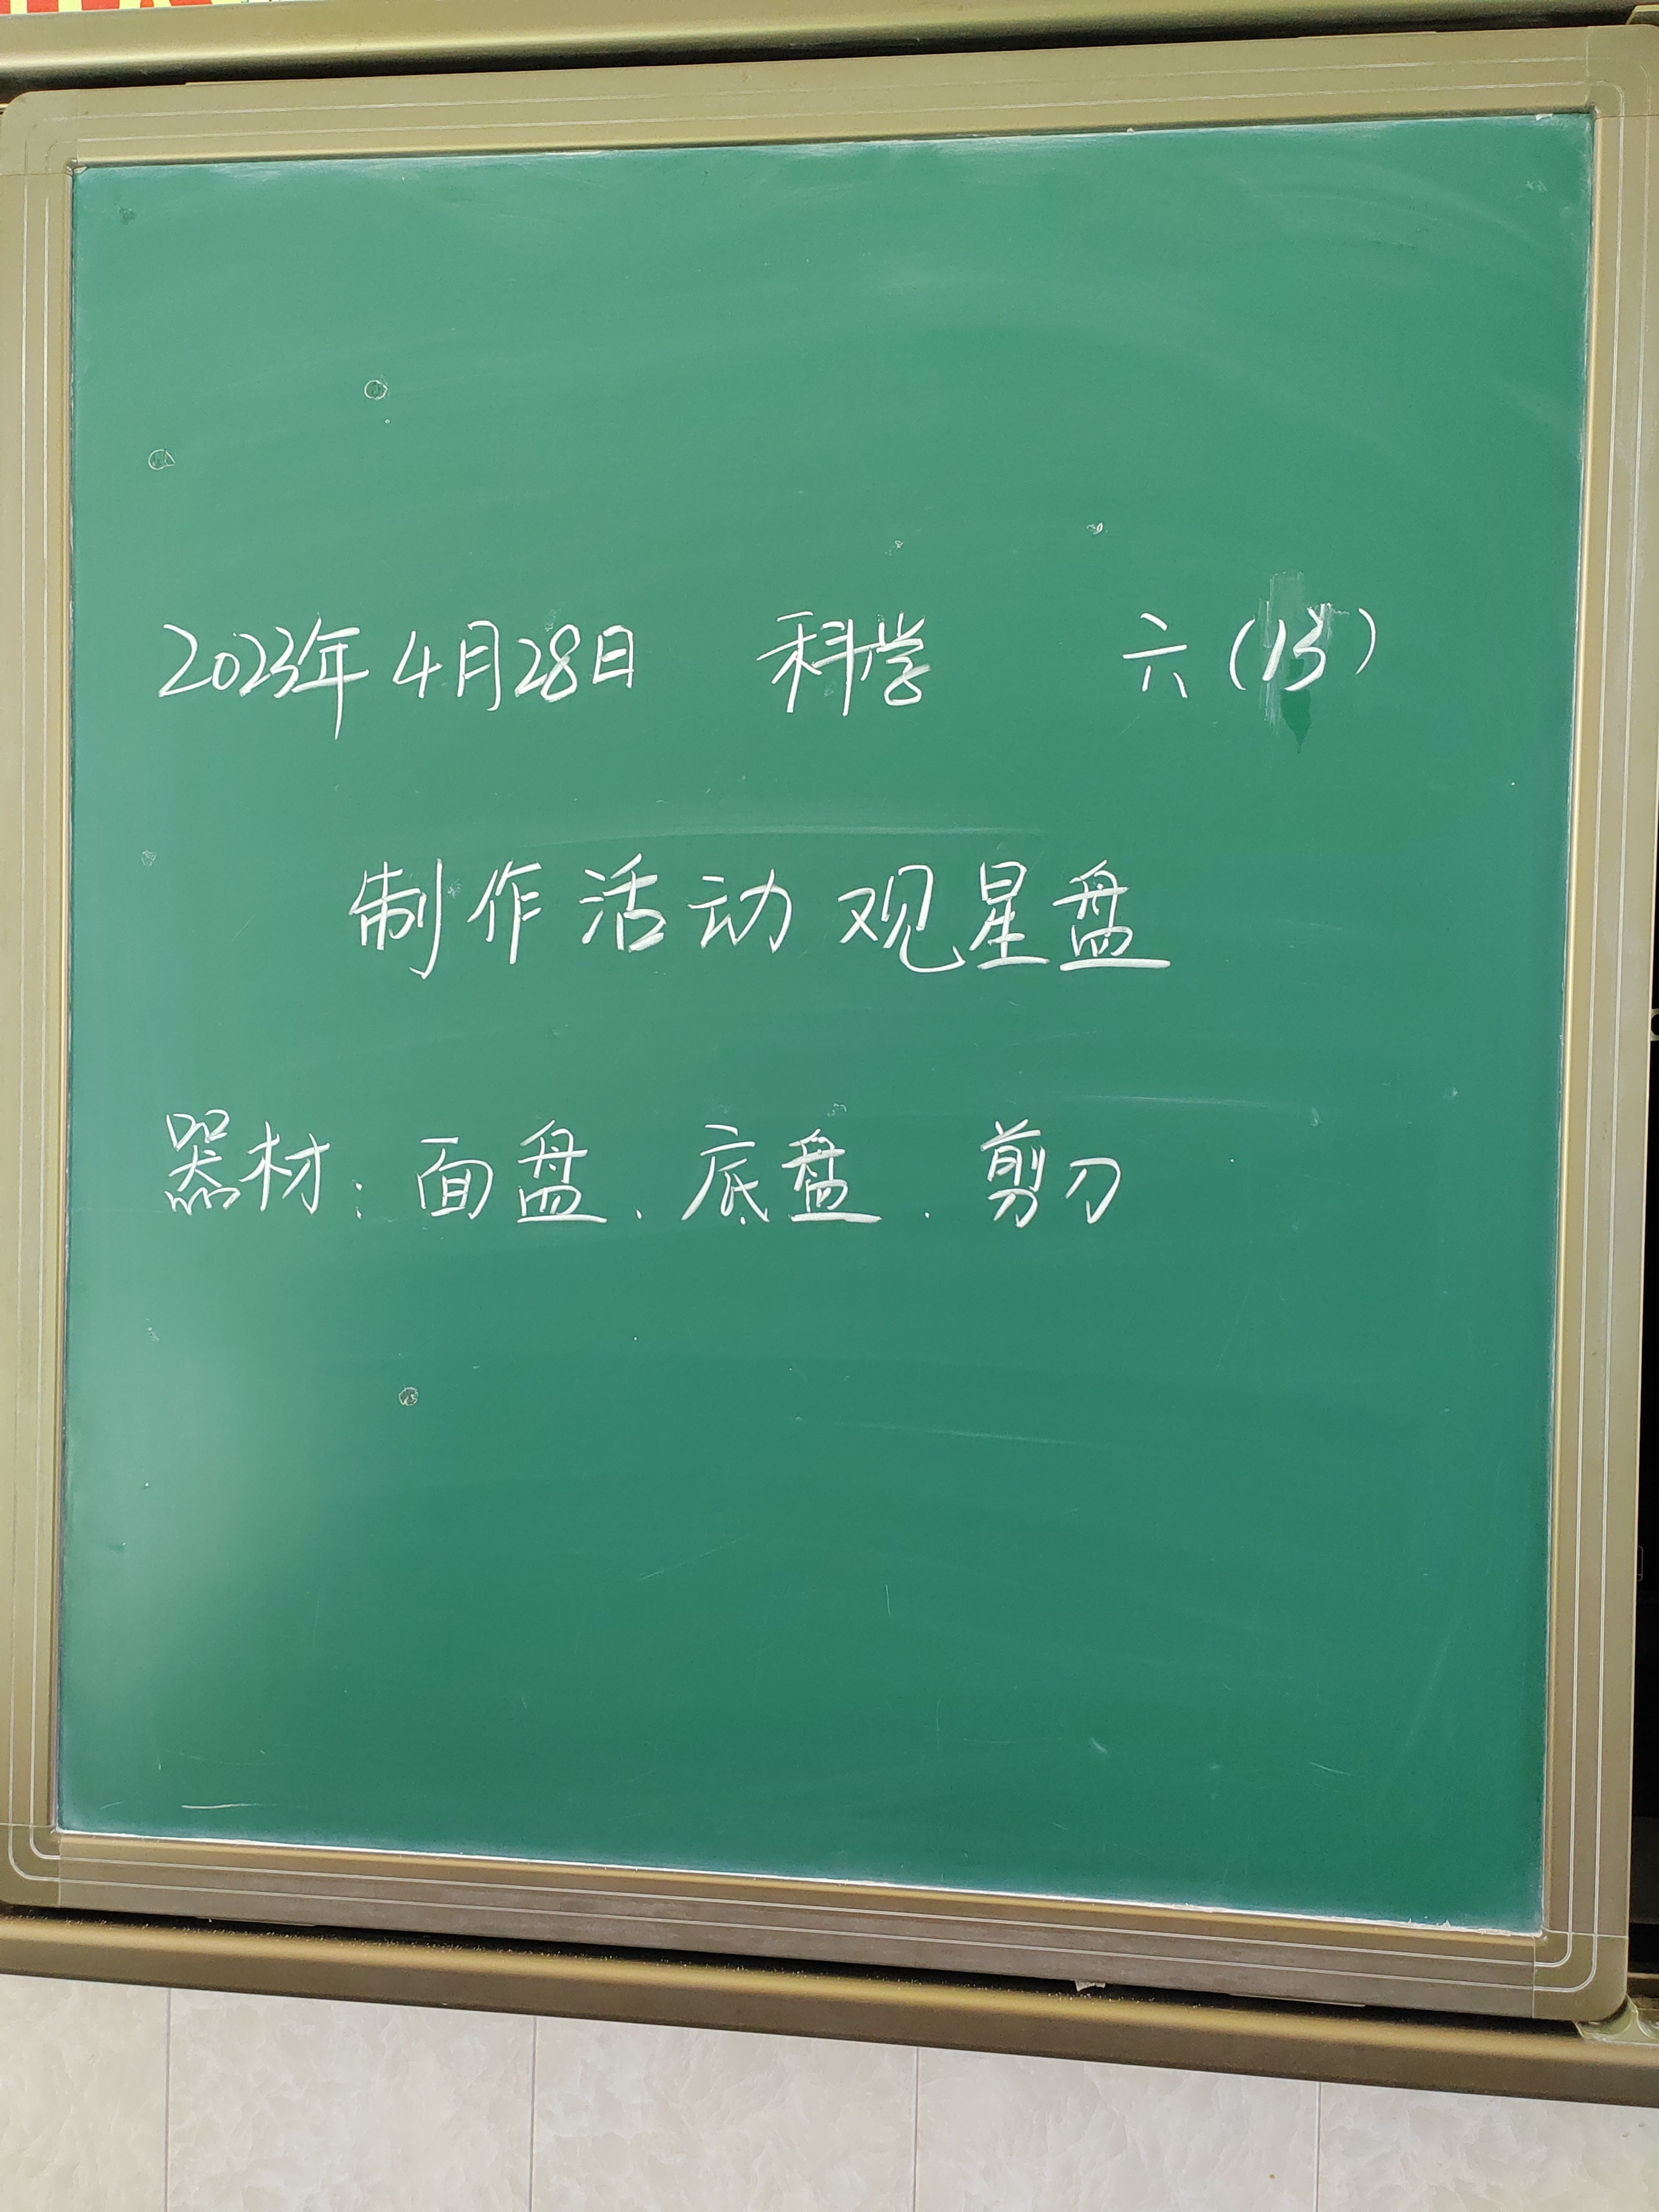 2023年4月28日 科学 六(15)
制作活动 观星盘
器材:面盘、底盘、剪刀